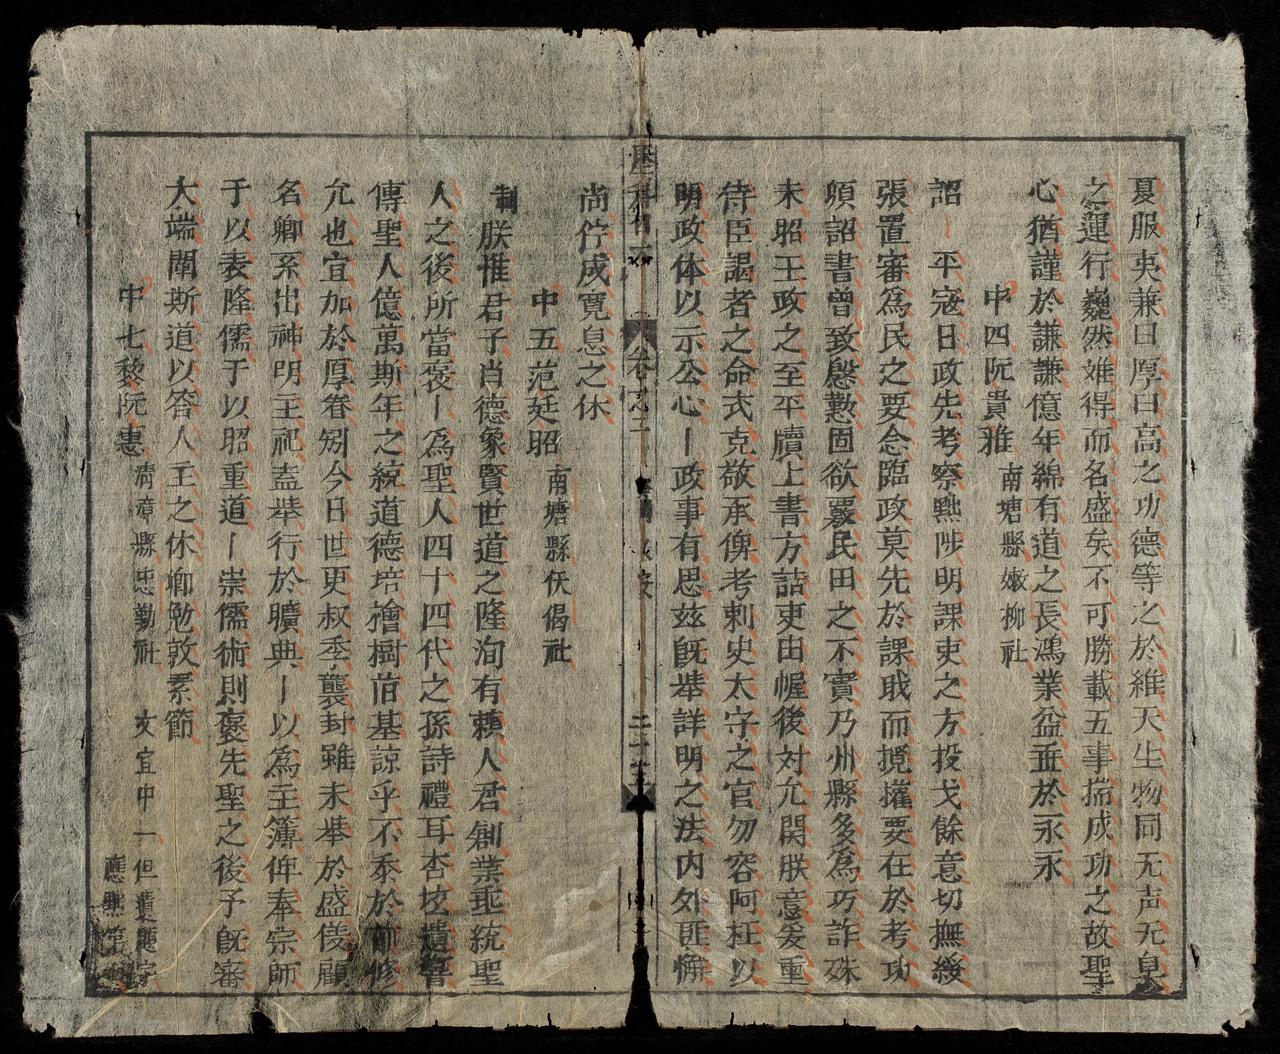 夏服夷兼曰厚曰高之功德等之於維天生物同无声无臭
之運行巍然难得而名盛矣不可勝載五事揣成功之故聖
心猶謹於謙謙億年綿有道之長鴻業益垂於永永
中四阮貴雅 南塘縣嫩柳社
詔 平寇日政先考察熙陟明課吏之方投戈餘意切撫綏
張置審為民之要念臨政莫先於課戝而撹搉要在於考功
頃詔書曾致慇懃固欲覈民田之不實乃州縣多為巧詐殊
未昭王政之至平牘上書方詰吏由幄後对允関朕意爰重
侍臣謁者之命式克敬承俾考剌史太守之官勿容阿枉以
明政体以示公心 政事有思兹既举詳明之法内外匪懈
尚佇成寬息之休
中五范廷昭 南塘縣伏偈社
制 朕惟君子肖德象賢世道之隆洵有賴人君創業垂統聖
人之後所當褒 為聖人四十四代之孫詩禮耳杏坛遺響
傳聖人億萬斯年之統道德培檜樹旧基諒乎不忝於前修
允也宜加於厚眷矧今日世更叔季襲封雖未举於盛儀顧
名卿系出神明主祀盍举行於曠典 以為主簿俾奉宗師
于以表隆儒于以昭重道 崇儒術則褒先聖之後予既審
大端闡斯道以答人王之休卿勉敦素節
中七黎阮惠 清漳縣忠勤社 文宜中一但遺題字
應熙第
歷科
卷之二